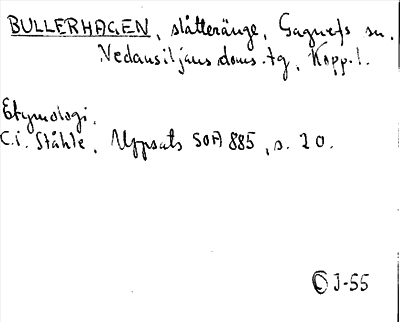 BULLERHAGEN, slåtteränge, Gagnefs sn.
Nedansiljans doms.tg, Kopp.l.
Etymologi.
C.I. Ståhle, Uppsats SOA 885, s. 20.
J-55